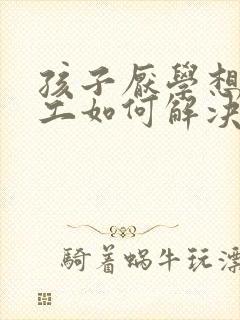 孩子厭學想
工如何解決
騎着蝸牛玩漂